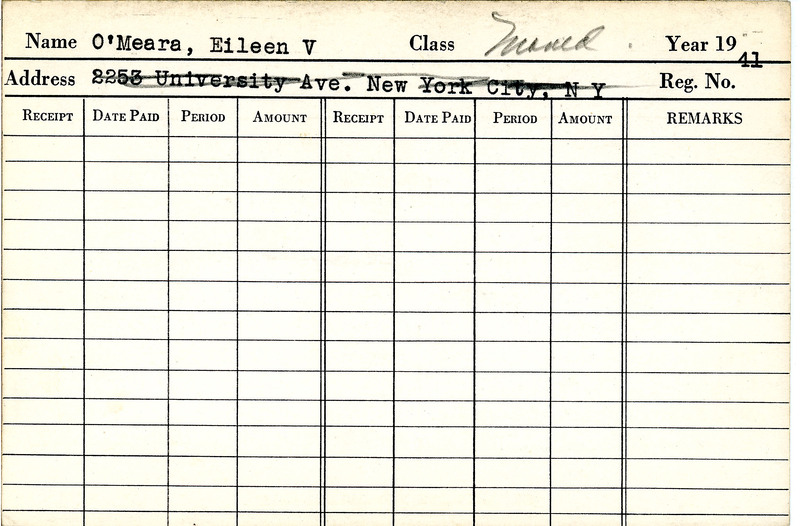 Name O'Meara, Eileen V Class Moved Year 1941
Address 2253 University Ave. New York City, N Y Reg. No.
RECEIPT DATE PAID PERIOD AMOUNT RECEIPT DATE PAID PERIOD AMOUNT REMARKS